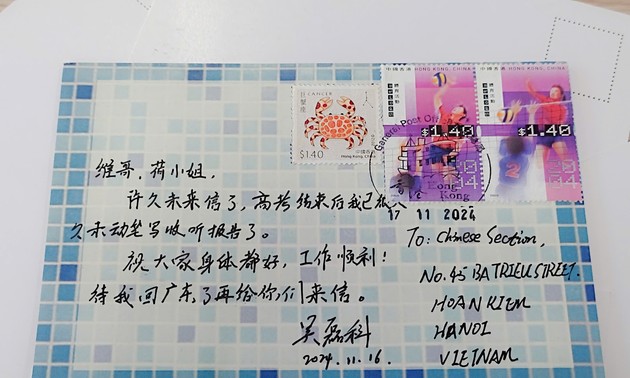 巨蟹座 CANCER
$1.40
中國香港
Hong Kong, China
中國香港 HONG KONG, CHINA
體育活動
$1.40
中國香港 HONG KONG, CHINA
體育活動
$1.40
General Post Office
Hong Kong
17 11 2024
维哥,荷小姐,
许久未来信了,高考结束后我已很久
久未动笔写收听报告了。
祝大家身体都好,工作顺利!
待我回广东了再给你们来信。
吴磊科
2024.11.16.
To: Chinese Section,
No.45 BA TRIEU STREET.
HOAN KIEM
HANOI
VIETNAM